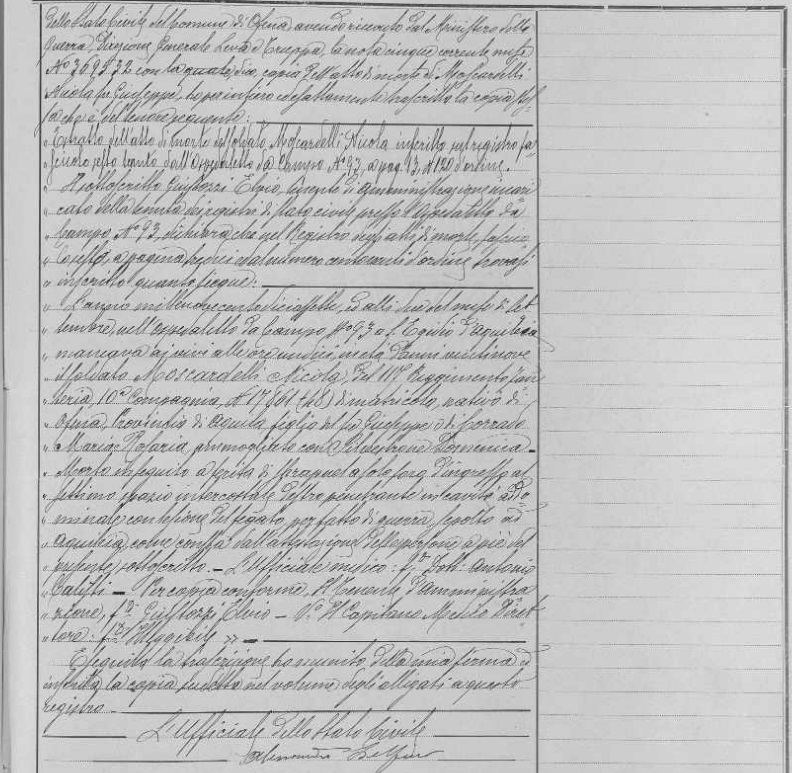 dello Stato Civile del Comune di Ofena avendo ricevuto dal Ministero della
Guerra, Direzione Generale Leva e Truppa la nota cinque corrente mese
N° 369532 con la quale copia dell'atto di morte di Moscardelli
Nicola fu Giuseppe, ho per intiero ed esattamente trascritta la copia stes-
sa che è del tenore seguente:
" Estratto dell'atto di morte del soldato Moscardelli Nicola inscritto nel registro fa-
" dall'Ospedaletto da Campo N° 93, a pag. 13, N 120 d'ordine.
" Il sottoscritto Giustozzi Elvio, tenente di amministrazione incari
" cato della tenuta dei registri di stato civile presso l'Ospedaletto da
" Campo N° 93, dichiara che nel Registro degli atti di morte,
" a pagina tredici ed al numero centoventi d'ordine trovasi
" inscritto quanto segue:
" L'anno millenovecentodiciassette, ed alli due del mese di Set
" tembre, nell'ospedaletto da Campo N° 93 a S. Egidio d'Aquileia
" mancava ai vivi alle ore undici, in età d'anni ventinove
" il soldato Moscardelli Nicola, del 117 Reggimento Fan
" teria 10ª Compagnia, N 17801 (48) di matricola, nativo di
" Ofena, Provincia di Aquila figlio del fu Giuseppe e di Corrado
" Maria Rosaria, ammogliato con Silvestrone Domenica –
" Morto in seguito a ferita di shrapnel a solo foro d'ingresso al
" settimo spazio intercostale destro penetrante in cavità addo-
" minale con lesione del fegato, per fatto di guerra, sepolto ad
" Aquileia, come consta dall'attestazione delle persone a piè del
" presente sottoscritte. – L'Ufficiale medico: fto Dott. Antonio
" – Per copia conforme, Il Tenente d'Amministra
" zione, fto Giustozzi Elvio – Vo Il Capitano Medico Diret
" tore: fto Illeggibile " –
Eseguita la trascrizione ho munito della mia firma ed
inserita la copia suddetta nel volume degli allegati a questo
registro. –
L'Ufficiale dello Stato Civile